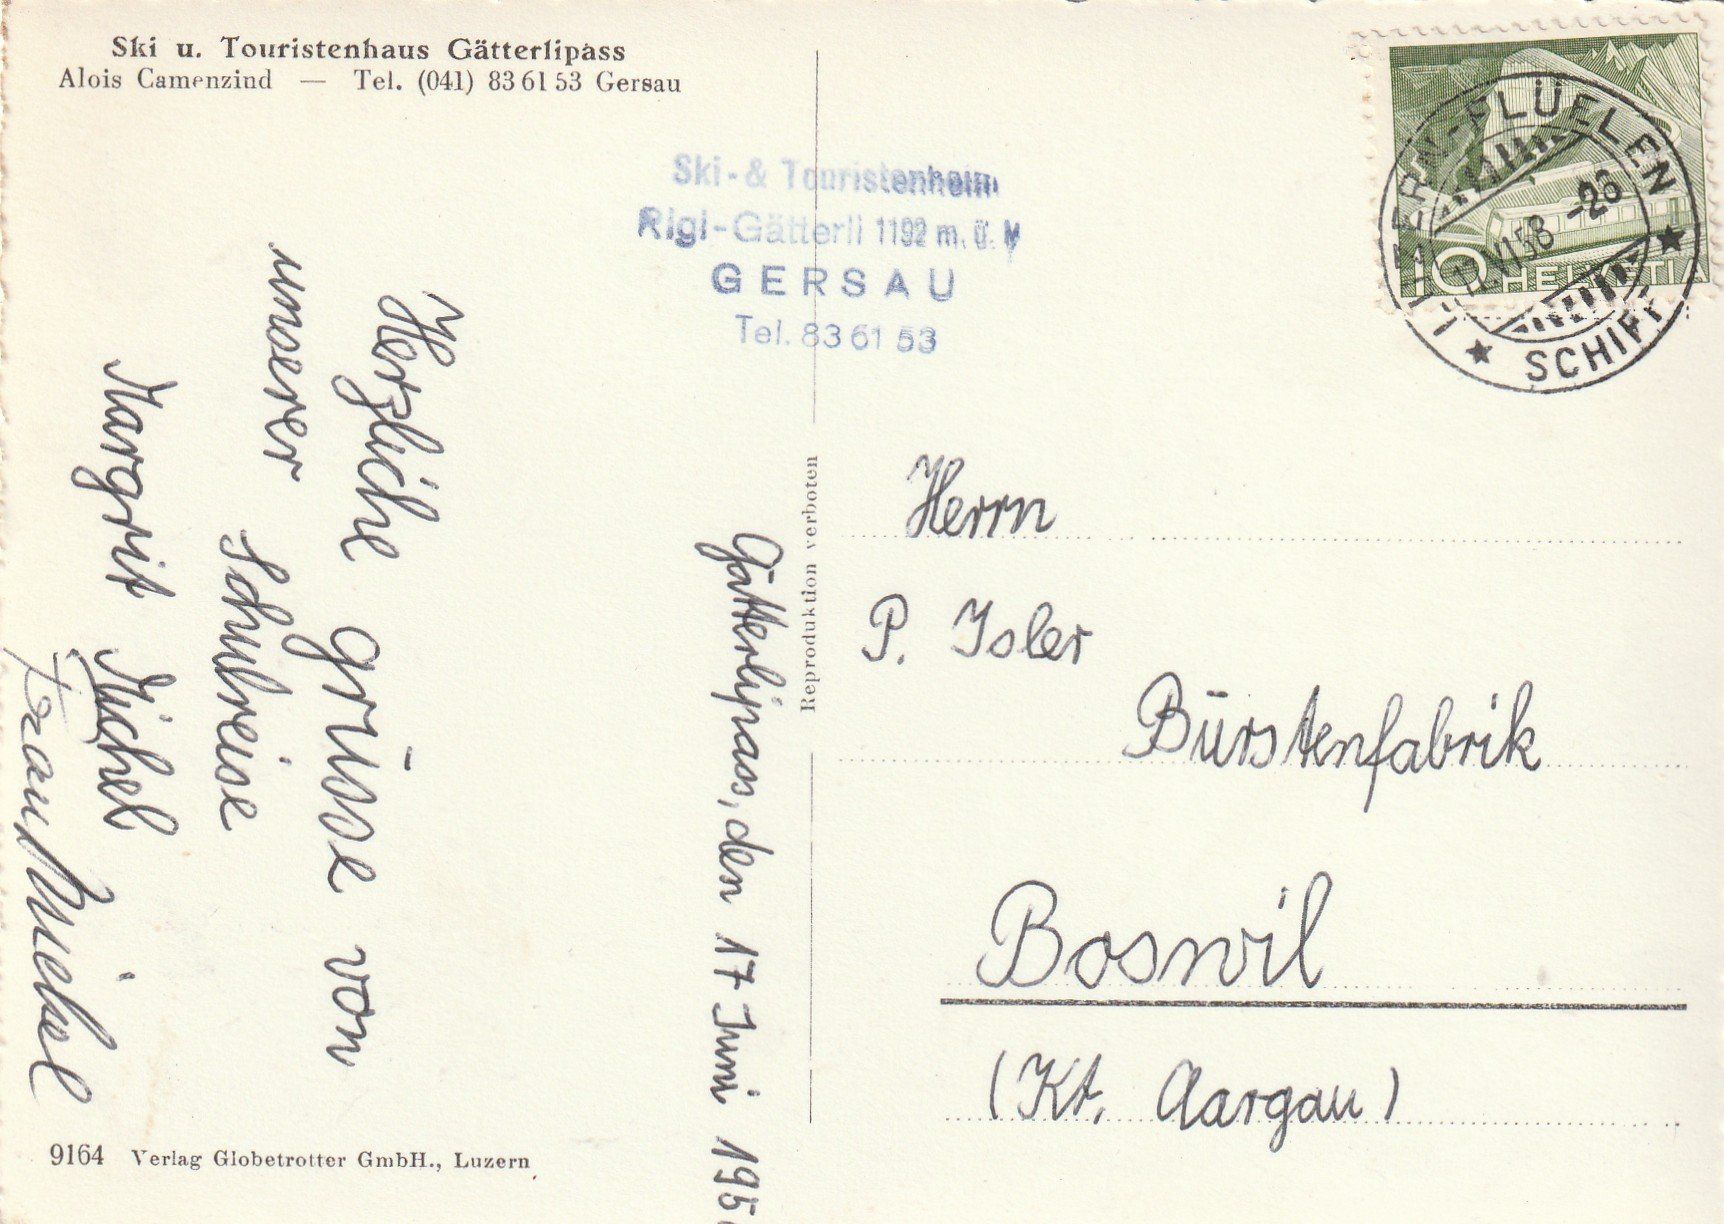 Ski u. Touristenhaus Gätterlipass
Alois Camenzind — Tel. (041) 83 61 53 Gersau
Ski- & Touristenheim
Rigi-Gätterli 1192 m. ü. M
GERSAU
Tel. 83 61 53
LUZERN-FLÜELEN
VI 58 -26
SCHIFF
10 HELVETIA
Gätterlipass, den 17 Juni 195
Herzliche Grüsse von
unserer Schulreise
Margrit Michel
Frau Michel
Reproduktion verboten
Herrn
P. Isler
Bürstenfabrik
Boswil
(Kt. Aargau)
9164 Verlag Globetrotter GmbH., Luzern